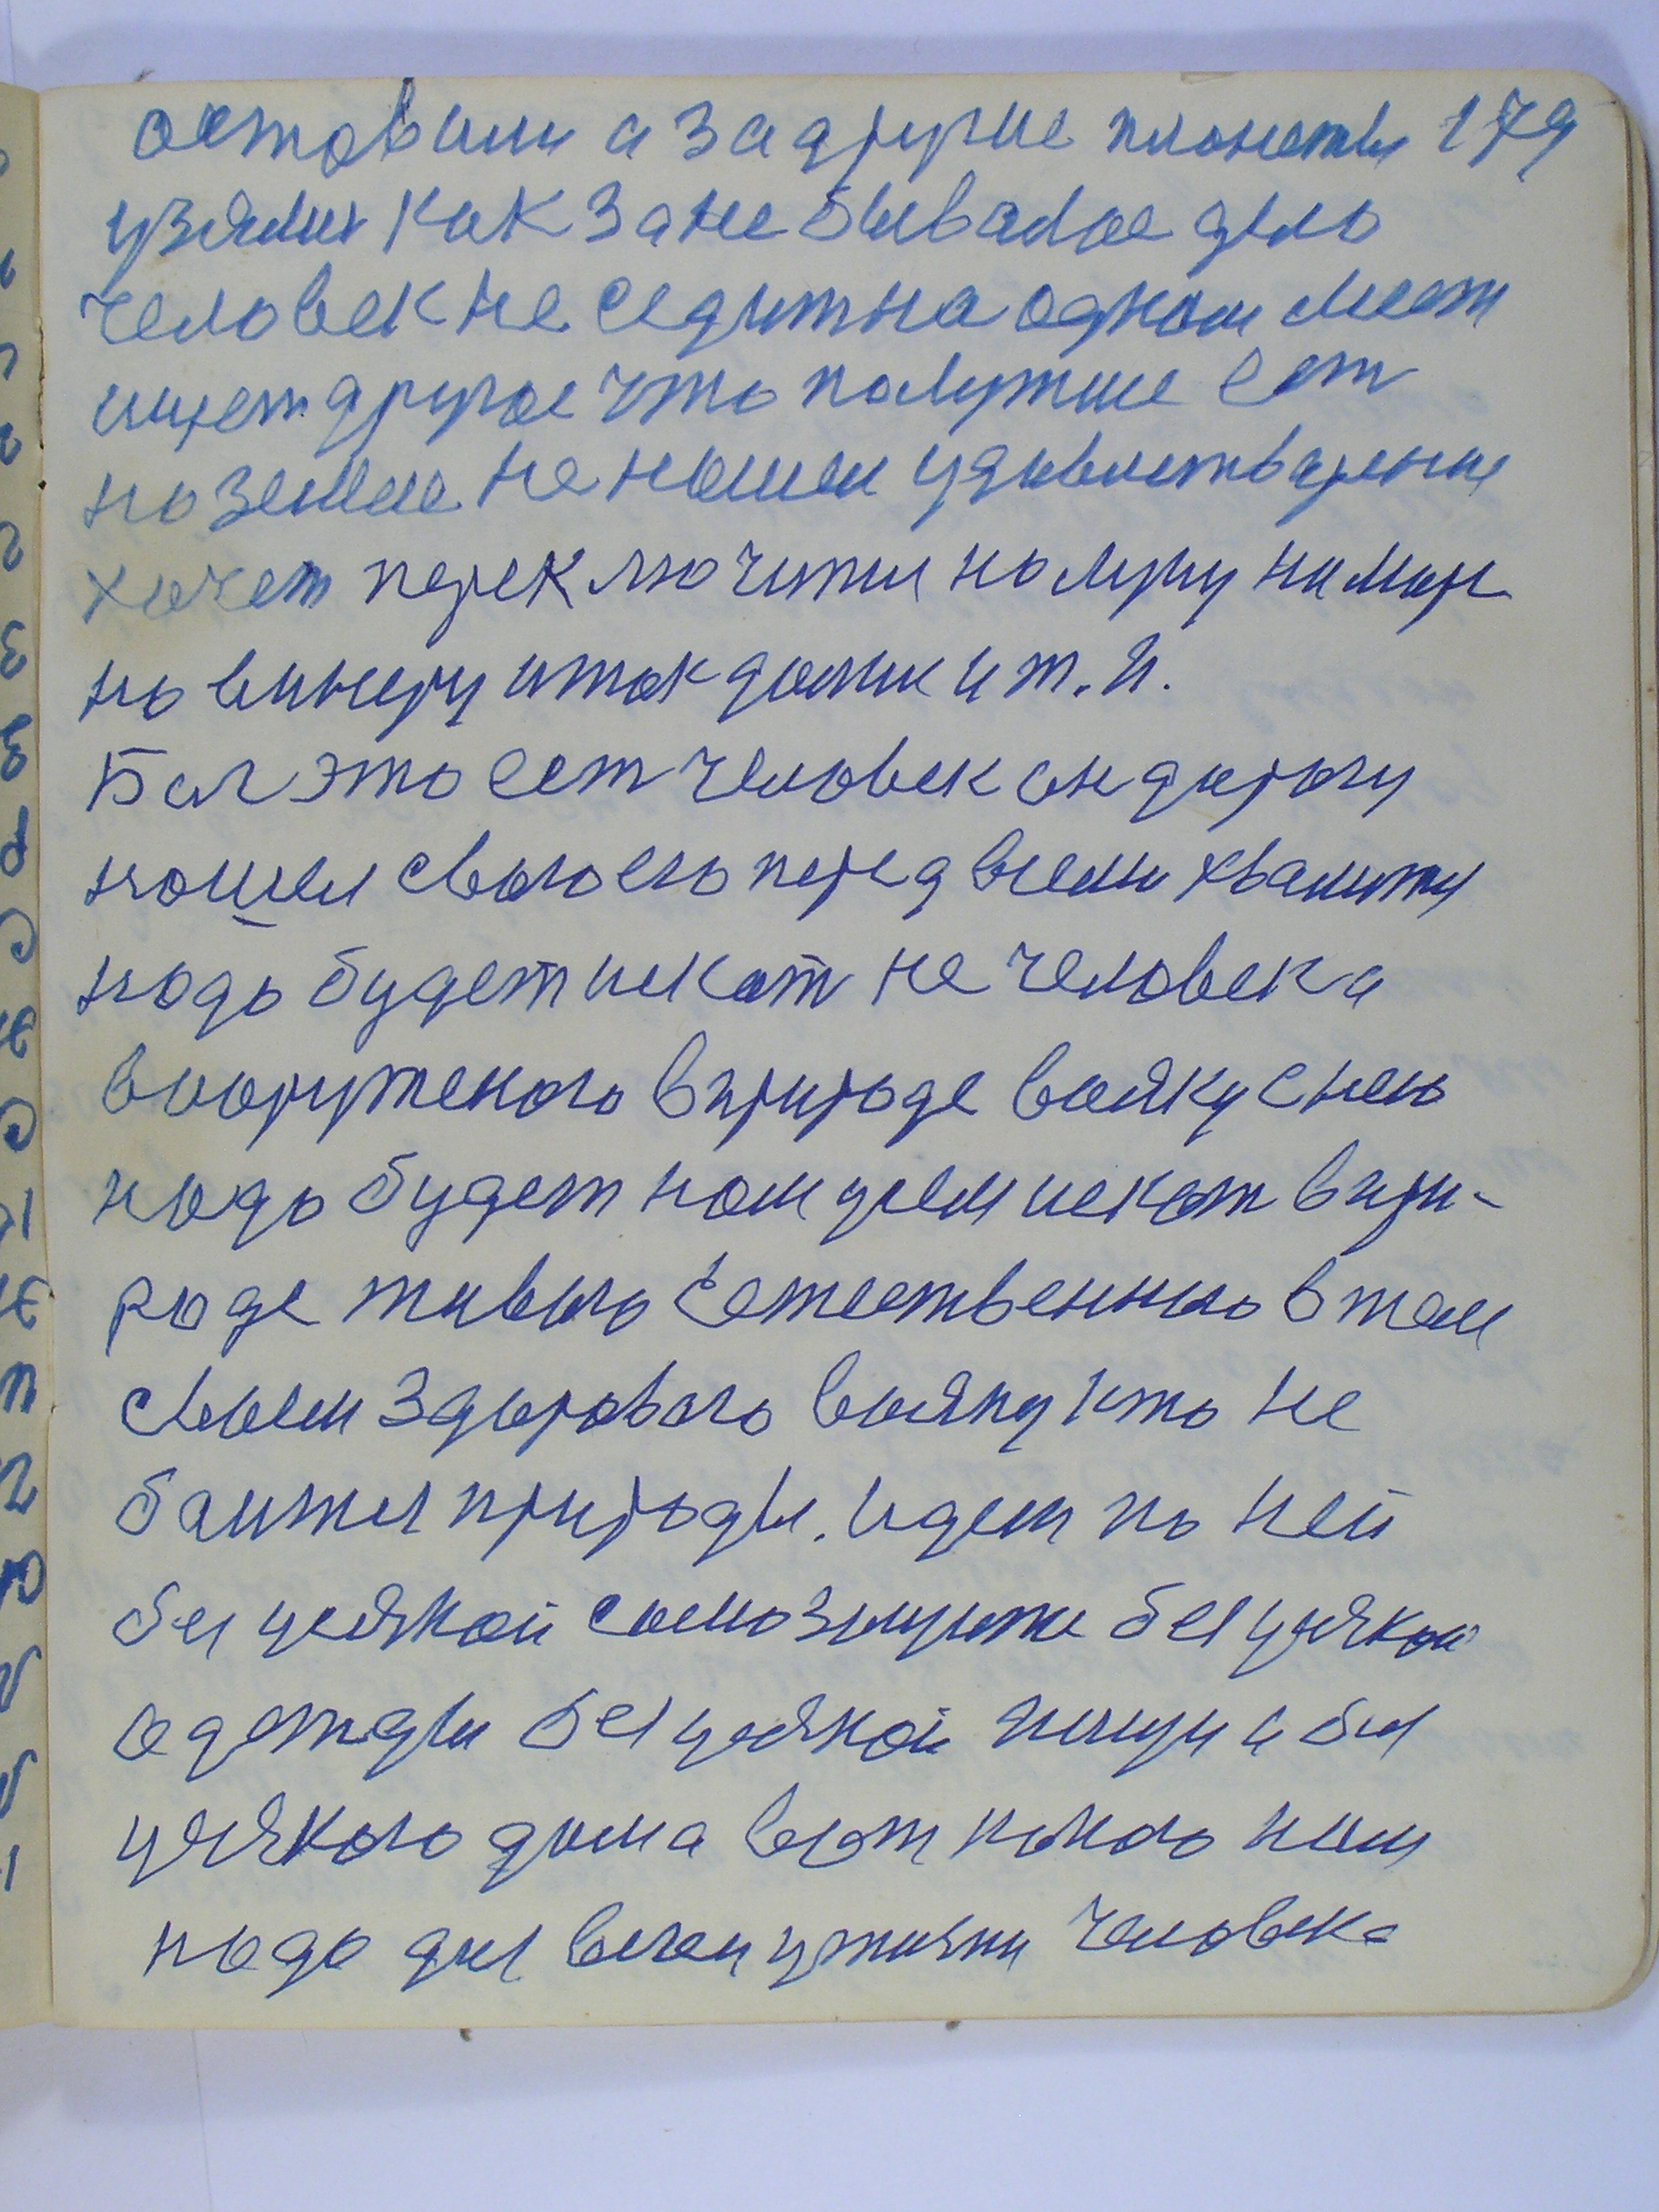 оставили а за другие планеты 179
узялись как за не бывалое дело
человек не седит на одном мест
ищет другое что полутше ест
на земле не нашел удавлетварение
хочет переключится на луну на марс
на винеру и так далие и т. п.
Бог это ест человек он дорогу
нашел свого его перед всеми хвалится
надо будет искат не человека
вооруженого в природе вояку с нею
надо будет нам усем искат в при-
роде живого Естественного в теле
своем здорового вояку кто не
баится природы. идет по ней
без усякой самозащите без усякой
одежды без усякой пищи и без
усякого дома вот кокого нам
надо для всех у жизни человека